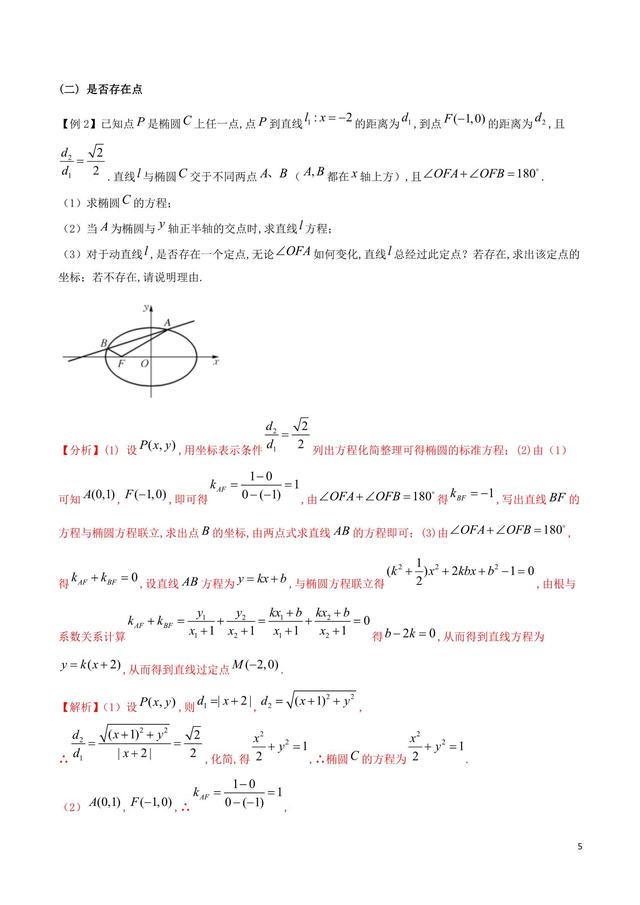 (二) 是否存在点
【例 2】已知点 P 是椭圆 C 上任一点,点 P 到直线 l₁ : x = −2 的距离为 d₁ ,到点 F(−1,0) 的距离为 d₂ ,且
d₂/d₁ = √2/2 .直线 l 与椭圆 C 交于不同两点 A、B ( A,B 都在 x 轴上方),且∠OFA+∠OFB=180° .
(1) 求椭圆 C 的方程;
(2) 当 A 为椭圆与 y 轴正半轴的交点时,求直线 l 方程;
(3) 对于动直线 l ,是否存在一个定点,无论∠OFA 如何变化,直线 l 总经过此定点? 若存在,求出该定点的
坐标; 若不存在,请说明理由.
y
A
B
F O x
【分析】(1) 设 P(x, y) ,用坐标表示条件 d₂/d₁ = √2/2 列出方程化简整理可得椭圆的标准方程; (2)由 (1)
可知 A(0,1) , F(−1,0) ,即可得 k_AF = (1−0)/(0−(−1)) = 1 ,由∠OFA+∠OFB=180° 得 k_BF = −1 ,写出直线 BF 的
方程与椭圆方程联立,求出点 B 的坐标,由两点式求直线 AB 的方程即可; (3)由∠OFA+∠OFB=180° ,
得 k_AF + k_BF = 0 ,设直线 AB 方程为 y = kx + b ,与椭圆方程联立得 (k² + 1/2)x² + 2kbx + b² −1 = 0 ,由根与
系数关系计算 k_AF + k_BF = y₁/(x₁+1) + y₂/(x₂+1) = (kx₁+b)/(x₁+1) + (kx₂+b)/(x₂+1) = 0 得 b − 2k = 0 ,从而得到直线方程为
y = k(x + 2) ,从而得到直线过定点 M(−2,0) .
【解析】(1) 设 P(x, y) ,则 d₁ =| x + 2 | , d₂ = √((x+1)² + y²) ,
∴ d₂/d₁ = √((x+1)² + y²)/| x + 2 | = √2/2 ,化简,得 x²/2 + y² = 1 ,∴椭圆 C 的方程为 x²/2 + y² = 1 .
(2) A(0,1) , F(−1,0) ,∴ k_AF = (1−0)/(0−(−1)) = 1 ,
5